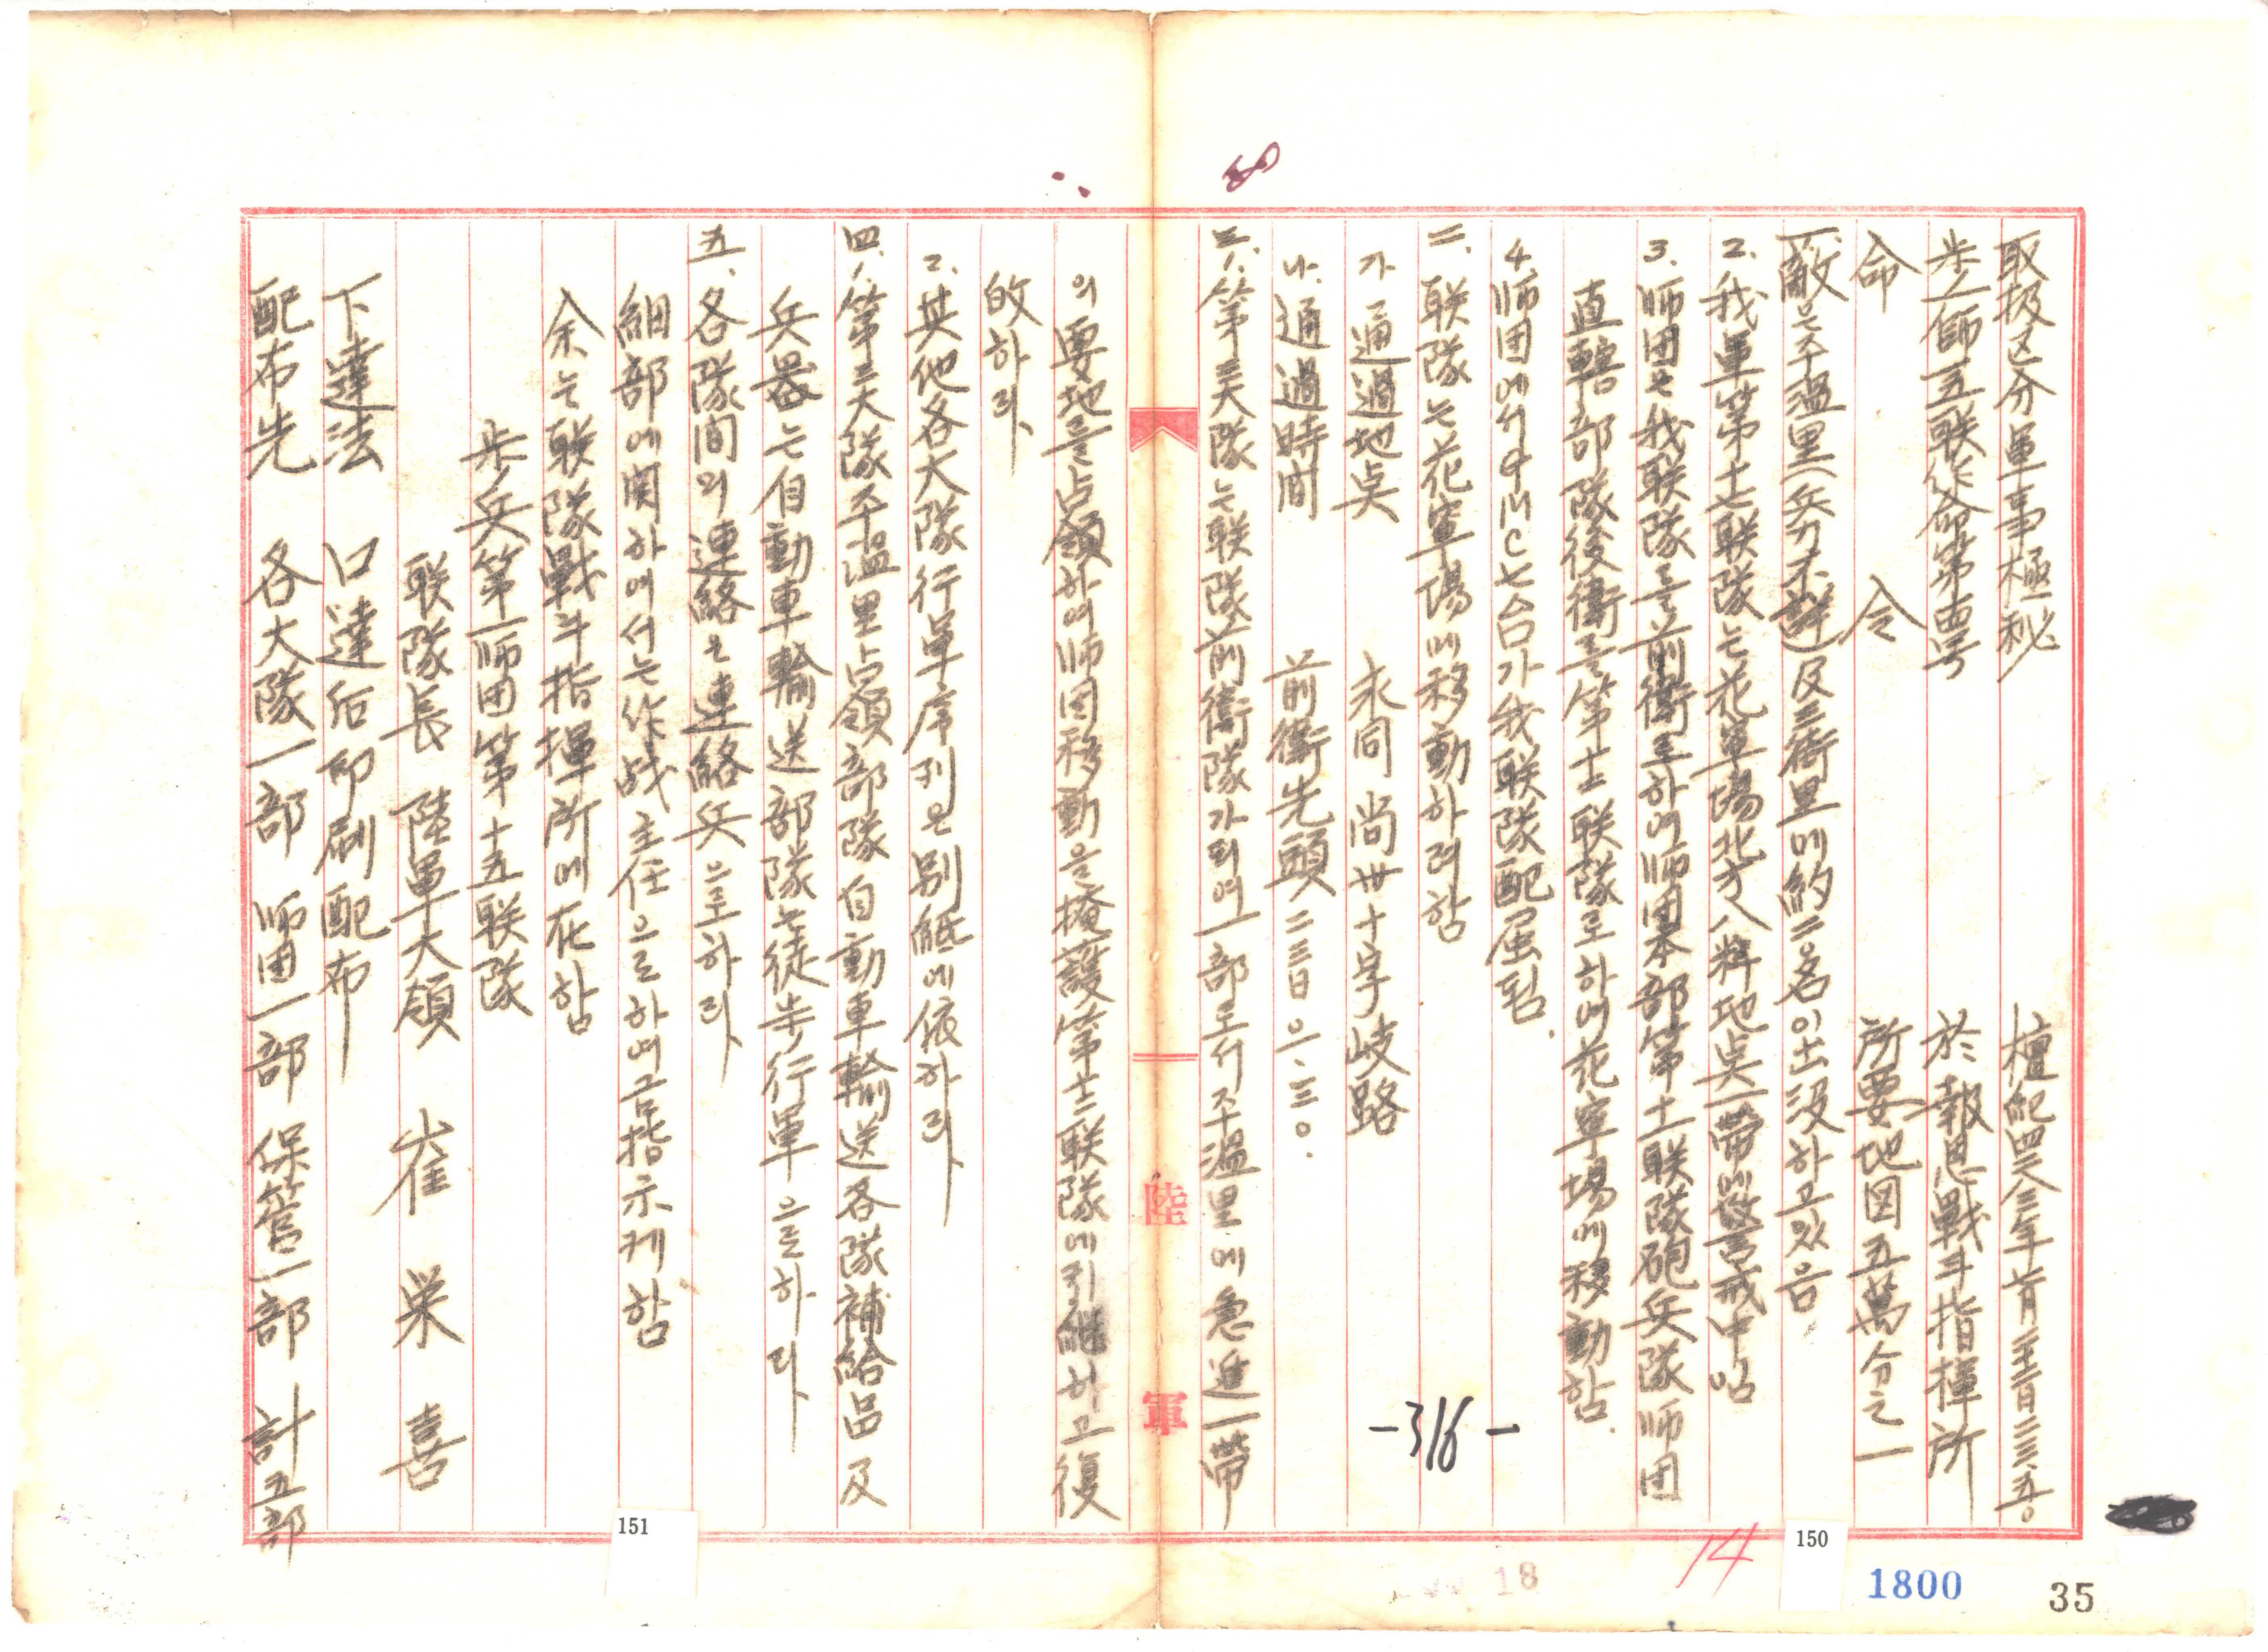 取扱区分 軍事極秘 檀紀四二八三年 月 二三、五〇
步一師 五联作命第 号 於 報恩戰斗指揮所
命 令 所要地図五萬分之一
一、敵은 주溫里(兵力不詳) 及 三街里에 約二〇名이 出没하고 있음
2. 我軍第十七联隊는 花軍場北方八粁地点一帶에 警戒中임
3. 师団은 我联隊를 前衛로 하여 师団本部 第十一联隊 砲兵隊 师団
直轄部隊 後衛를 第十二联隊로 하여 花寧場에 移動함.
4. 师団에서 TMC 七台가 我联隊配属됨.
二. 联隊는 花寧場에 移動하려함
가 通過地点 永同 尚州 十字岐路
나. 通過時間 前衛先頭 二三日 〇一.三〇.
三. 1. 第三大隊는 联隊前衛隊가 되여 一部로서 주溫里에 急進一帶
의 要地를 占領하여 师団移動을 掩護 第十二联隊에 引継하고 復
皈하라
2. 其他各大隊行軍序列은 別紙에 依하라
四. 1. 第三大隊 주溫里占領部隊 自動車輸送 各隊補給品 及
兵器는 自動車輸送 部隊는 徒步行軍으로하라
五. 各隊間의 連絡은 連絡兵으로하라
細部에 関하여서는 作战主任으로하여금 指示케함
余는 联隊戰斗指揮所에 在함
步兵第一师団第十五联隊
联隊長 陸軍大領 崔 栄 喜
下達法 口達后印刷配布
配布先 各大隊一部 师団一部 保管一部 計五部
陸 軍
-316-
8
14
150
151
18
1800
35